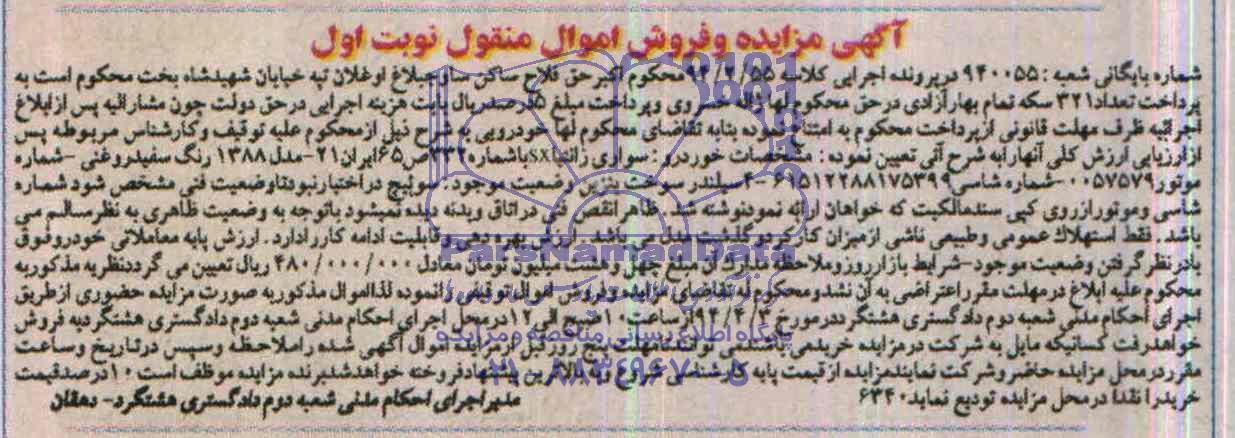 آگهی مزایده وفروش اموال منقول نوبت اول
شماره بایگانی شعبه : ۹۴۰۰۵۵ درپرونده اجرایی کلاسه ۹۴/۲/۵۵ محکوم اکبرحق فلاح ساکن ساوجبلاغ اوغلان تپه خیابان شهیدشاه بخت محکوم است به
پرداخت تعداد۳۲۱ سکه تمام بهارآزادی درحق محکوم لها وپرداخت مبلغ ریال بابت هزینه اجرایی درحق دولت چون مشارالیه پس ازابلاغ
اجرائیه ظرف مهلت قانونی ازپرداخت محکوم به امتناع نموده بنابه تقاضای محکوم لها خودرویی به شرح ذیل ازمحکوم علیه توقیف وکارشناس مربوطه پس
ازارزیابی ارزش کلی آنهارابه شرح آتی تعیین نموده : مشخصات خودرو : سواری زانتیاSXباشماره ص۶۵ایران۲۱ -مدل۱۳۸۸ رنگ سفیدروغنی -شماره
موتور۰۰۵۷۵۷۹-شماره شاسی -۴سیلندر سوخت بنزین وضعیت موجود . سوئیچ دراختیارنبودتاوضعیت فنی مشخص شود شماره
شاسی وموتورازروی کپی سندمالکیت که خواهان ارائه نمودنوشته شد. ظاهرانقص فنی دراتاق وبدنه دیده نمیشود باتوجه به وضعیت ظاهری به نظرسالم می
باشد. فقط استهلاک عمومی وطبیعی ناشی ازمیزان کارکرد وگذشت می باشد. ارزش بهره دهی وقابلیت ادامه کاررادارد. ارزش پایه معاملاتی خودروفوق
بادر نظر گرفتن وضعیت موجود-شرایط بازارروز وملاحظه مبلغ چهل وهشت میلیون تومان معادل ۴۸۰/۰۰۰/۰۰۰ ریال تعیین می گرددنظریه مذکوربه
محکوم علیه ابلاغ درمهلت مقرراعتراضی به آن نشدومحکوم له تقاضای مزایده وفروش اموال توقیفی رانموده لذااموال مذکوربه صورت مزایده حضوری ازطریق
اجرای احکام مدنی شعبه دوم دادگستری هشتگرددرمورخ ۹۴/۴/۳ ساعت۱۰صبح الی ۱۲درمحل اجرای احکام مدنی شعبه دوم دادگستری هشتگردبه فروش
خواهدرفت کسانیکه مایل به شرکت درمزایده خریدمی باشندمی توانند پنج روزقبل ازمزایده اموال آگهی شده راملاحظه وسپس درتاریخ وساعت
مقرردرمحل مزایده حاضروشرکت نمایندمزایده ازقیمت پایه کارشناسی شروع وبه بالاترین پیشنهادفروخته خواهدشدبرنده مزایده موظف است ۱۰درصدقیمت
خریدرا نقدا درمحل مزایده تودیع نماید۶۳۴۰
مدیراجرای احکام مدنی شعبه دوم دادگستری هشتگرد- دهقان
ParsNamadData
پایگاه اطلاع رسانی مناقصه و مزایده
۰۲۱-۸۸۳۴۹۶۷۰-۵